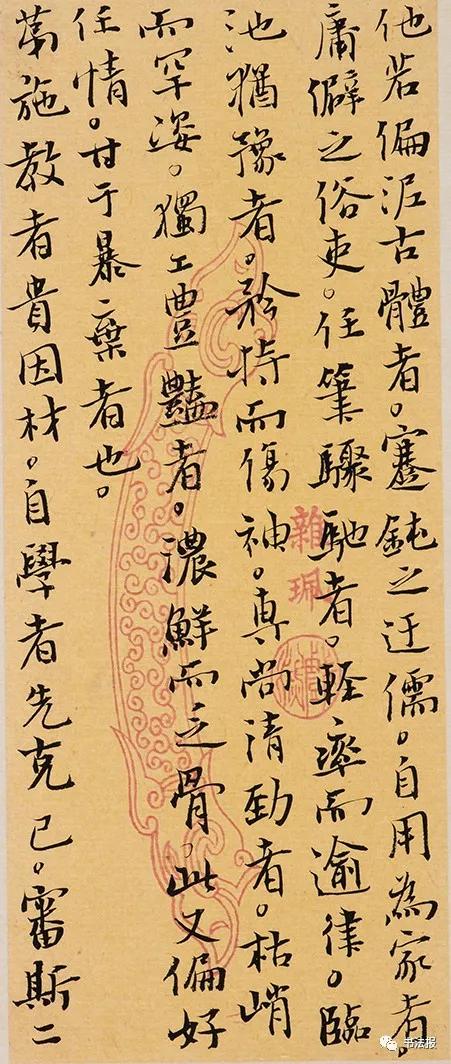 他若偏泥古體者。蹇鈍之迂儒。自用為家者。
庸僻之俗吏。任筆驟馳者。輕率而逾律。臨
池猶豫者。矜持而傷神。専尚清勁者。枯峭
而罕姿。獨工豊豔者。濃鮮而乏骨。此又偏好
任情。甘于暴棄者也。
第施教者貴因材。自學者先克己。審斯二
雜珮
书法报